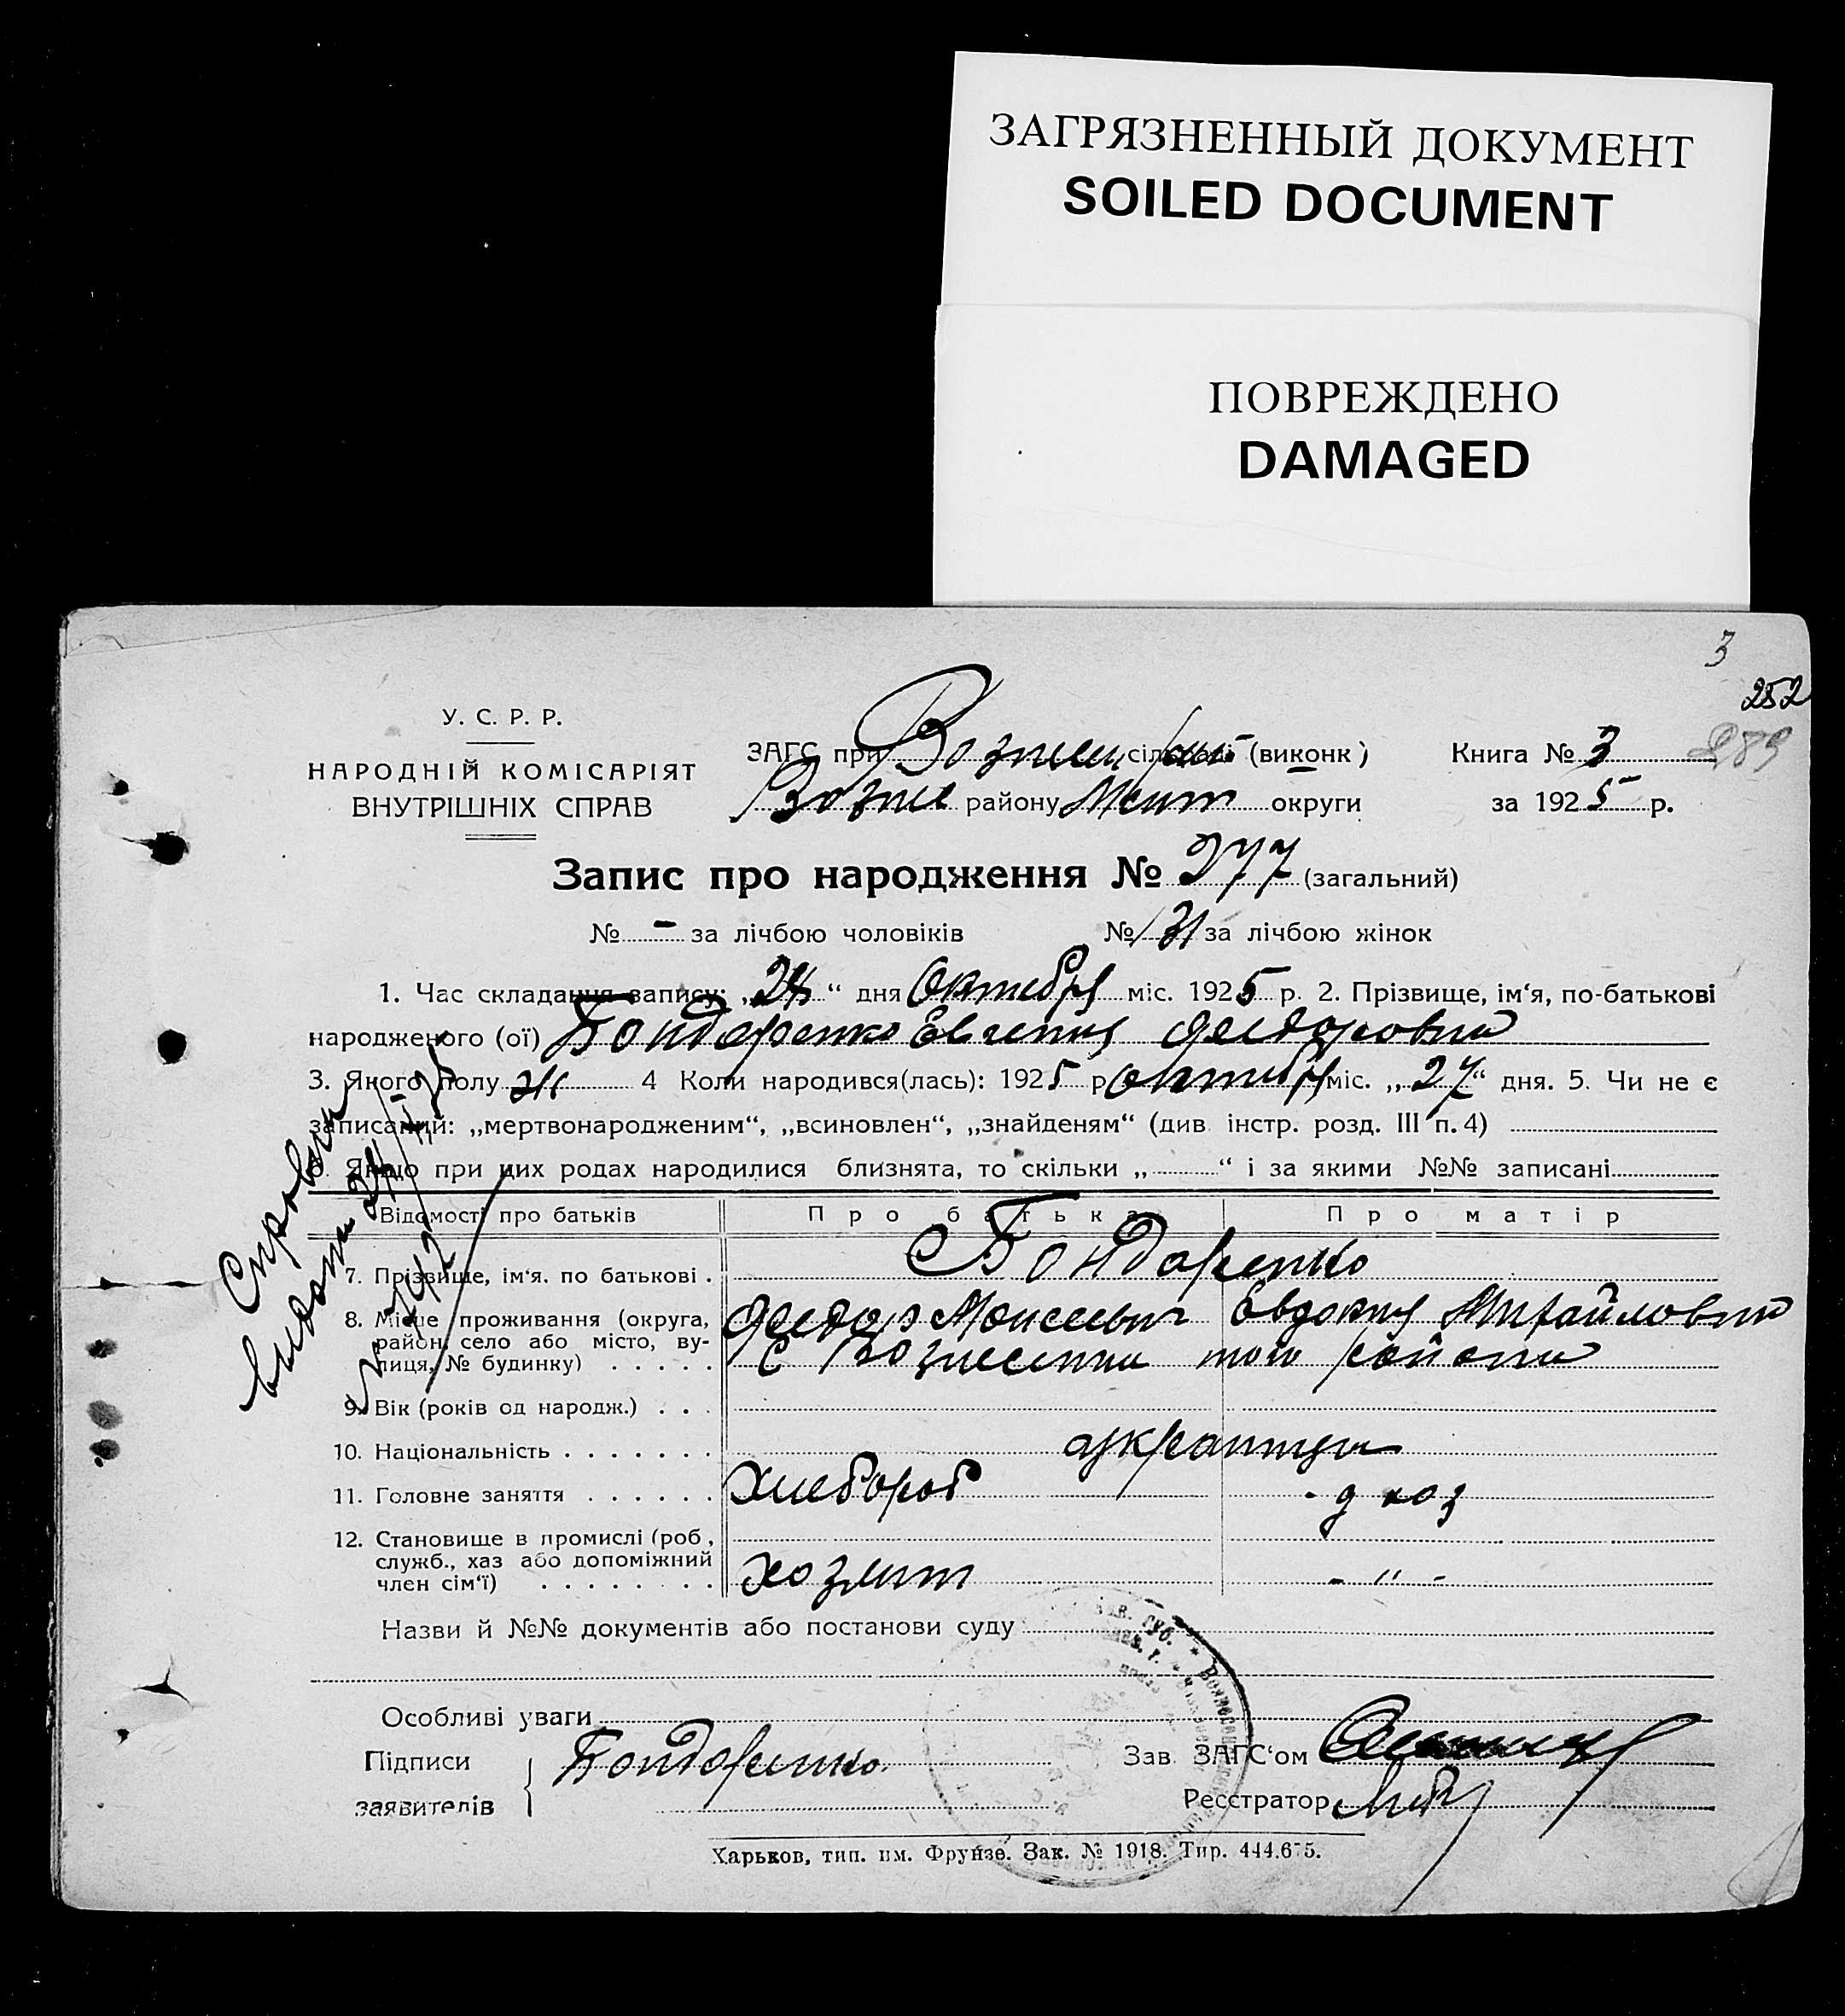 ЗАГРЯЗНЕННЫЙ ДОКУМЕНТ
SOILED DOCUMENT
ПОВРЕЖДЕНО
DAMAGED
3
252
289
У. С. Р. Р.
НАРОДНІЙ КОМІСАРІЯТ
ВНУТРІШНІХ СПРАВ
ЗАГС при (виконк)
Вознес району округи
Книга № 3
за 1925 р.
Запис про народження № 277 (загальний)
№ - за лічбою чоловіків № 131 за лічбою жінок
1. Час складання запису: „ “ дня Октября міс. 1925 р. 2. Прізвище, ім‘я, по-батькові
народженого (ої) Бондаренко Евгения Федоровна
3. Якого полу ж 4 Коли народився(лась): 1925 р Октября міс. „ “ дня. 5. Чи не є
записаний: „мертвонародженим“, „всиновлен“, „знайденям“ (див. інстр. розд. III п. 4)
Якщо при цих родах народилися близнята, то скільки „ “ і за якими №№ записані
Справка
видана
Відомості про батьків Про батька Про матір
7. Прізвище, ім‘я. по батькові . Бондаренко
Федор Моисеевич Евдокия Михайловна
8. Місце проживання (округа, район, село або місто, вулиця, № будинку) . . . . . с Вознесенка того района
9. Вік (років од народж.) . . .
10. Національність . . . . . . . украинцы
11. Головне заняття . . . . . . Хлебороб
12. Становище в промислі (роб., служб., хаз або допоміжний член сім‘ї) . . . . . . . . - " -
Назви й №№ документів або постанови суду
Особливі уваги
Підписи
заявителів
Бондаренко
Зав. ЗАГС‘ом
Реєстратор
Харьков, тип. им. Фрунзе. Зак. № 1918. Тир. 444.675.